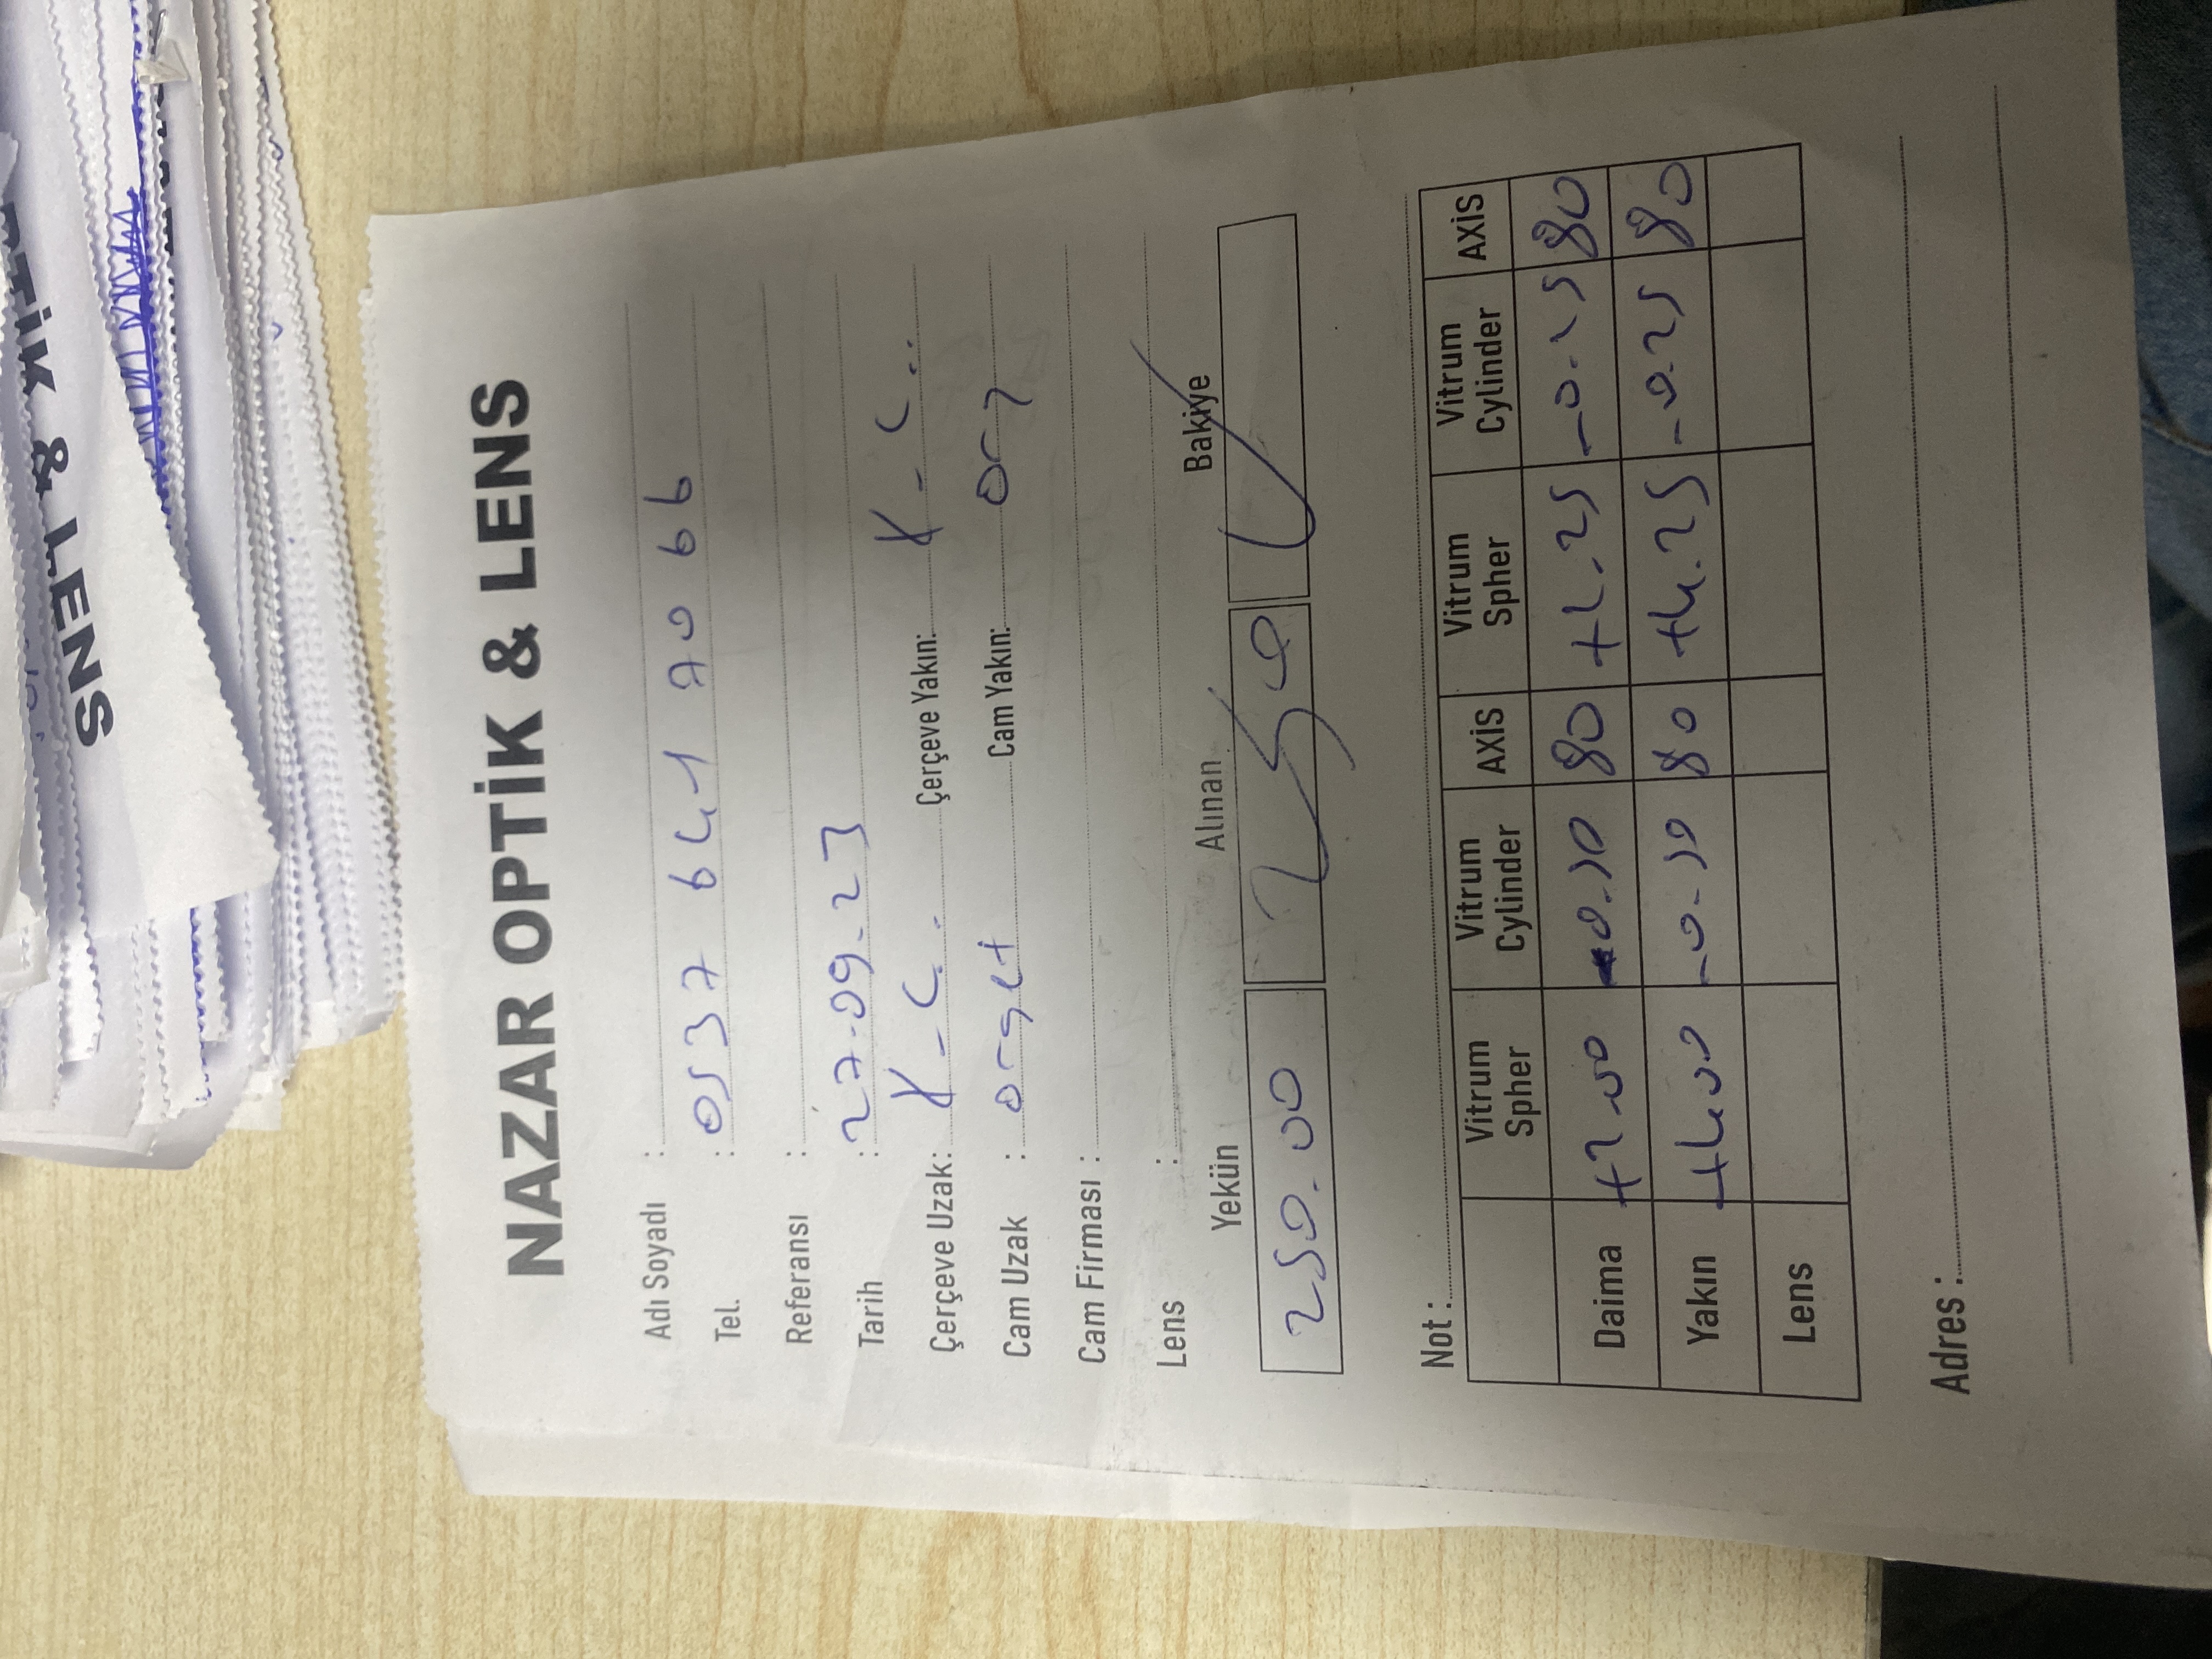 TİK & LENS
NAZAR OPTİK & LENS
Adı Soyadı :
Tel. : 0537 641 70 66
Referansı :
Tarih : 27.09.23
Çerçeve Uzak: K-Ç.. Çerçeve Yakın: K-Ç..
Cam Uzak : Cam Yakın: org
Cam Firması :
Lens :
Yekün Alınan Bakiye
250.00 250
Not :
Vitrum Spher Vitrum Cylinder AXİS Vitrum Spher Vitrum Cylinder AXİS
Daima +2.00 -0.50 80 -0.25 80
Yakın +4.00 -0.50 80 +4.25 -0.25 80
Lens
Adres :